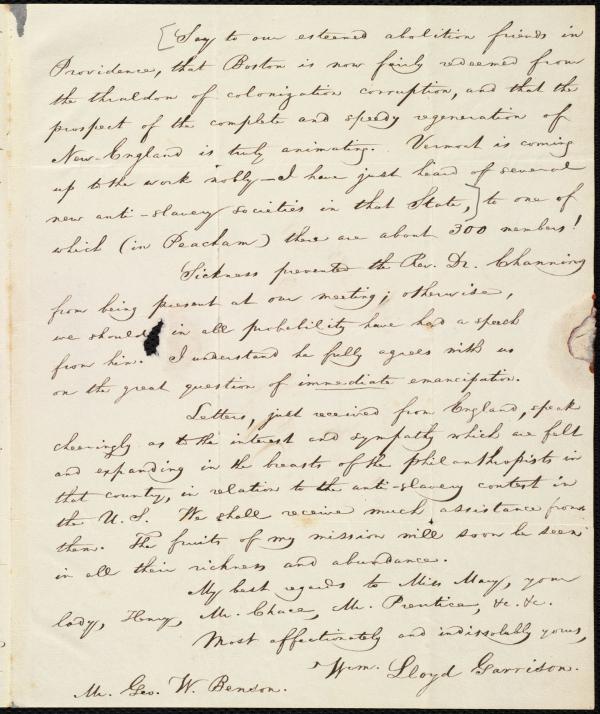 [Say to our esteemed abolition friends in
Providence, that Boston is now fairly redeemed from
the thraldom of colonization corruption, and that the
prospect of the complete and speedy regeneration of
New-England is truly animating. Vermont is coming
up to the work nobly—I have just heard of several
new anti-slavery societies in that State,] to one of
which (in Peacham) there are about 300 members!
Sickness prevented the Rev. Dr. Channing
from being present at our meeting; otherwise,
we should in all probability have had a speech
from him. I understand he fully agrees with us
on the great question of immediate emancipation.
Letters, just received from England, speak
cheeringly as to the interest and sympathy which are felt
and expanding in the breasts of the philanthropists in
that country, in relation to the anti-slavery contest in
the U. S. We shall receive much assistance from
them. The fruits of my mission will soon be seen
in all their richness and abundance.
My best regards to Miss May, your
lady, Henry, Mr. Chace, Mr. Prentice, &c. &c.
Most affectionately and indissolubly yours,
Wm. Lloyd Garrison.
Mr. Geo. W. Benson.